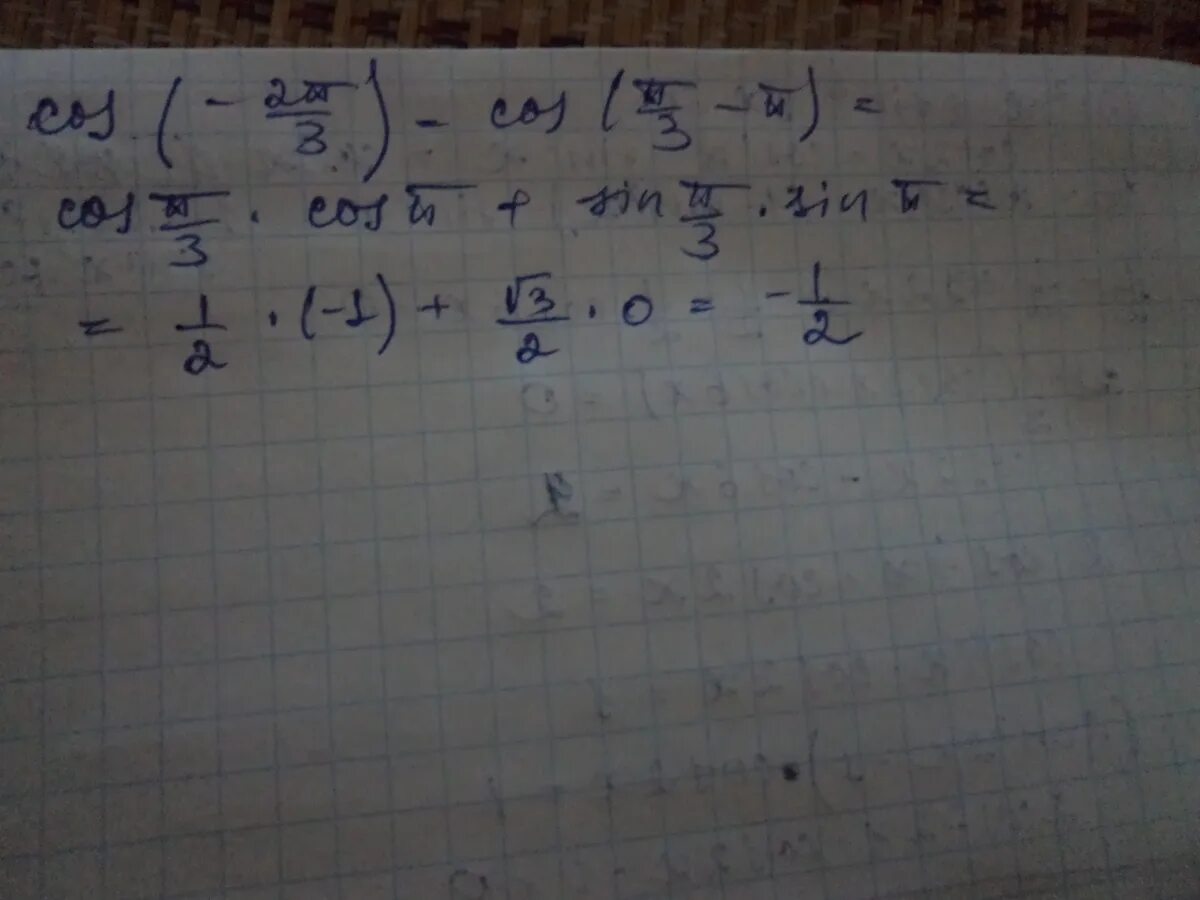 cos (- 2π/3) - cos (π/3 - π) =
cos π/3 · cos π + sin π/3 · sin π =
= 1/2 · (-1) + √3/2 · 0 = - 1/2